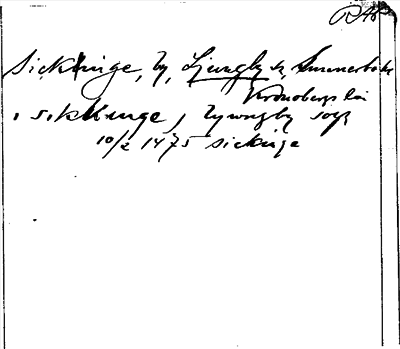 Sickinge, by, Ljungby s, Sunnerbo hd
Kronobergs län
i sikkinge, lywngby sogn
10/2 1475 sickinge